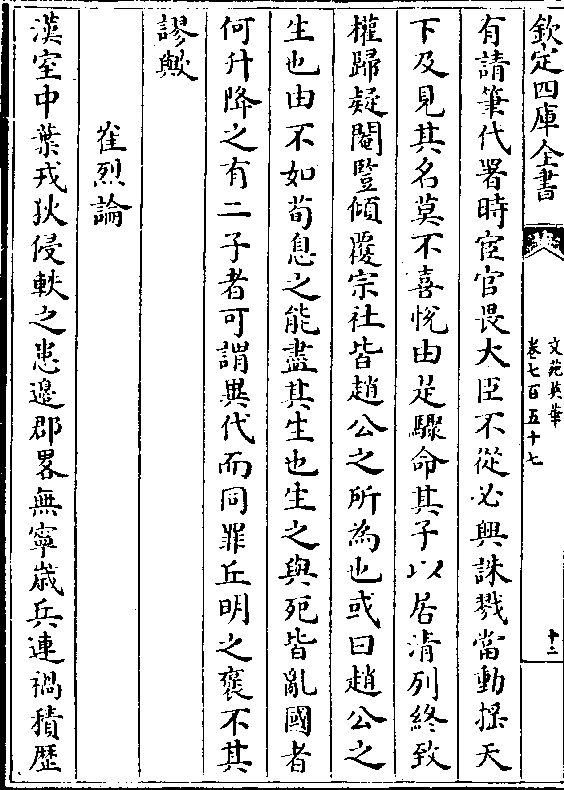 欽定四庫全書
文苑英華
卷七百五十七
十二
有請筆代署時宦官畏大臣不從必興誅戮當動揺天
下及見其名莫不喜悅由是驟命其子以居清列終致
權歸疑閹豎傾覆宗社皆趙公之所為也或曰趙公之
生也由不如荀息之能盡其生也生之與死皆亂國者
何升降之有二子者可謂異代而同罪丘明之襃不其
謬歟
崔烈論
漢室中葉戎狄侵軼之患邊郡畧無寧歲兵連禍積歴